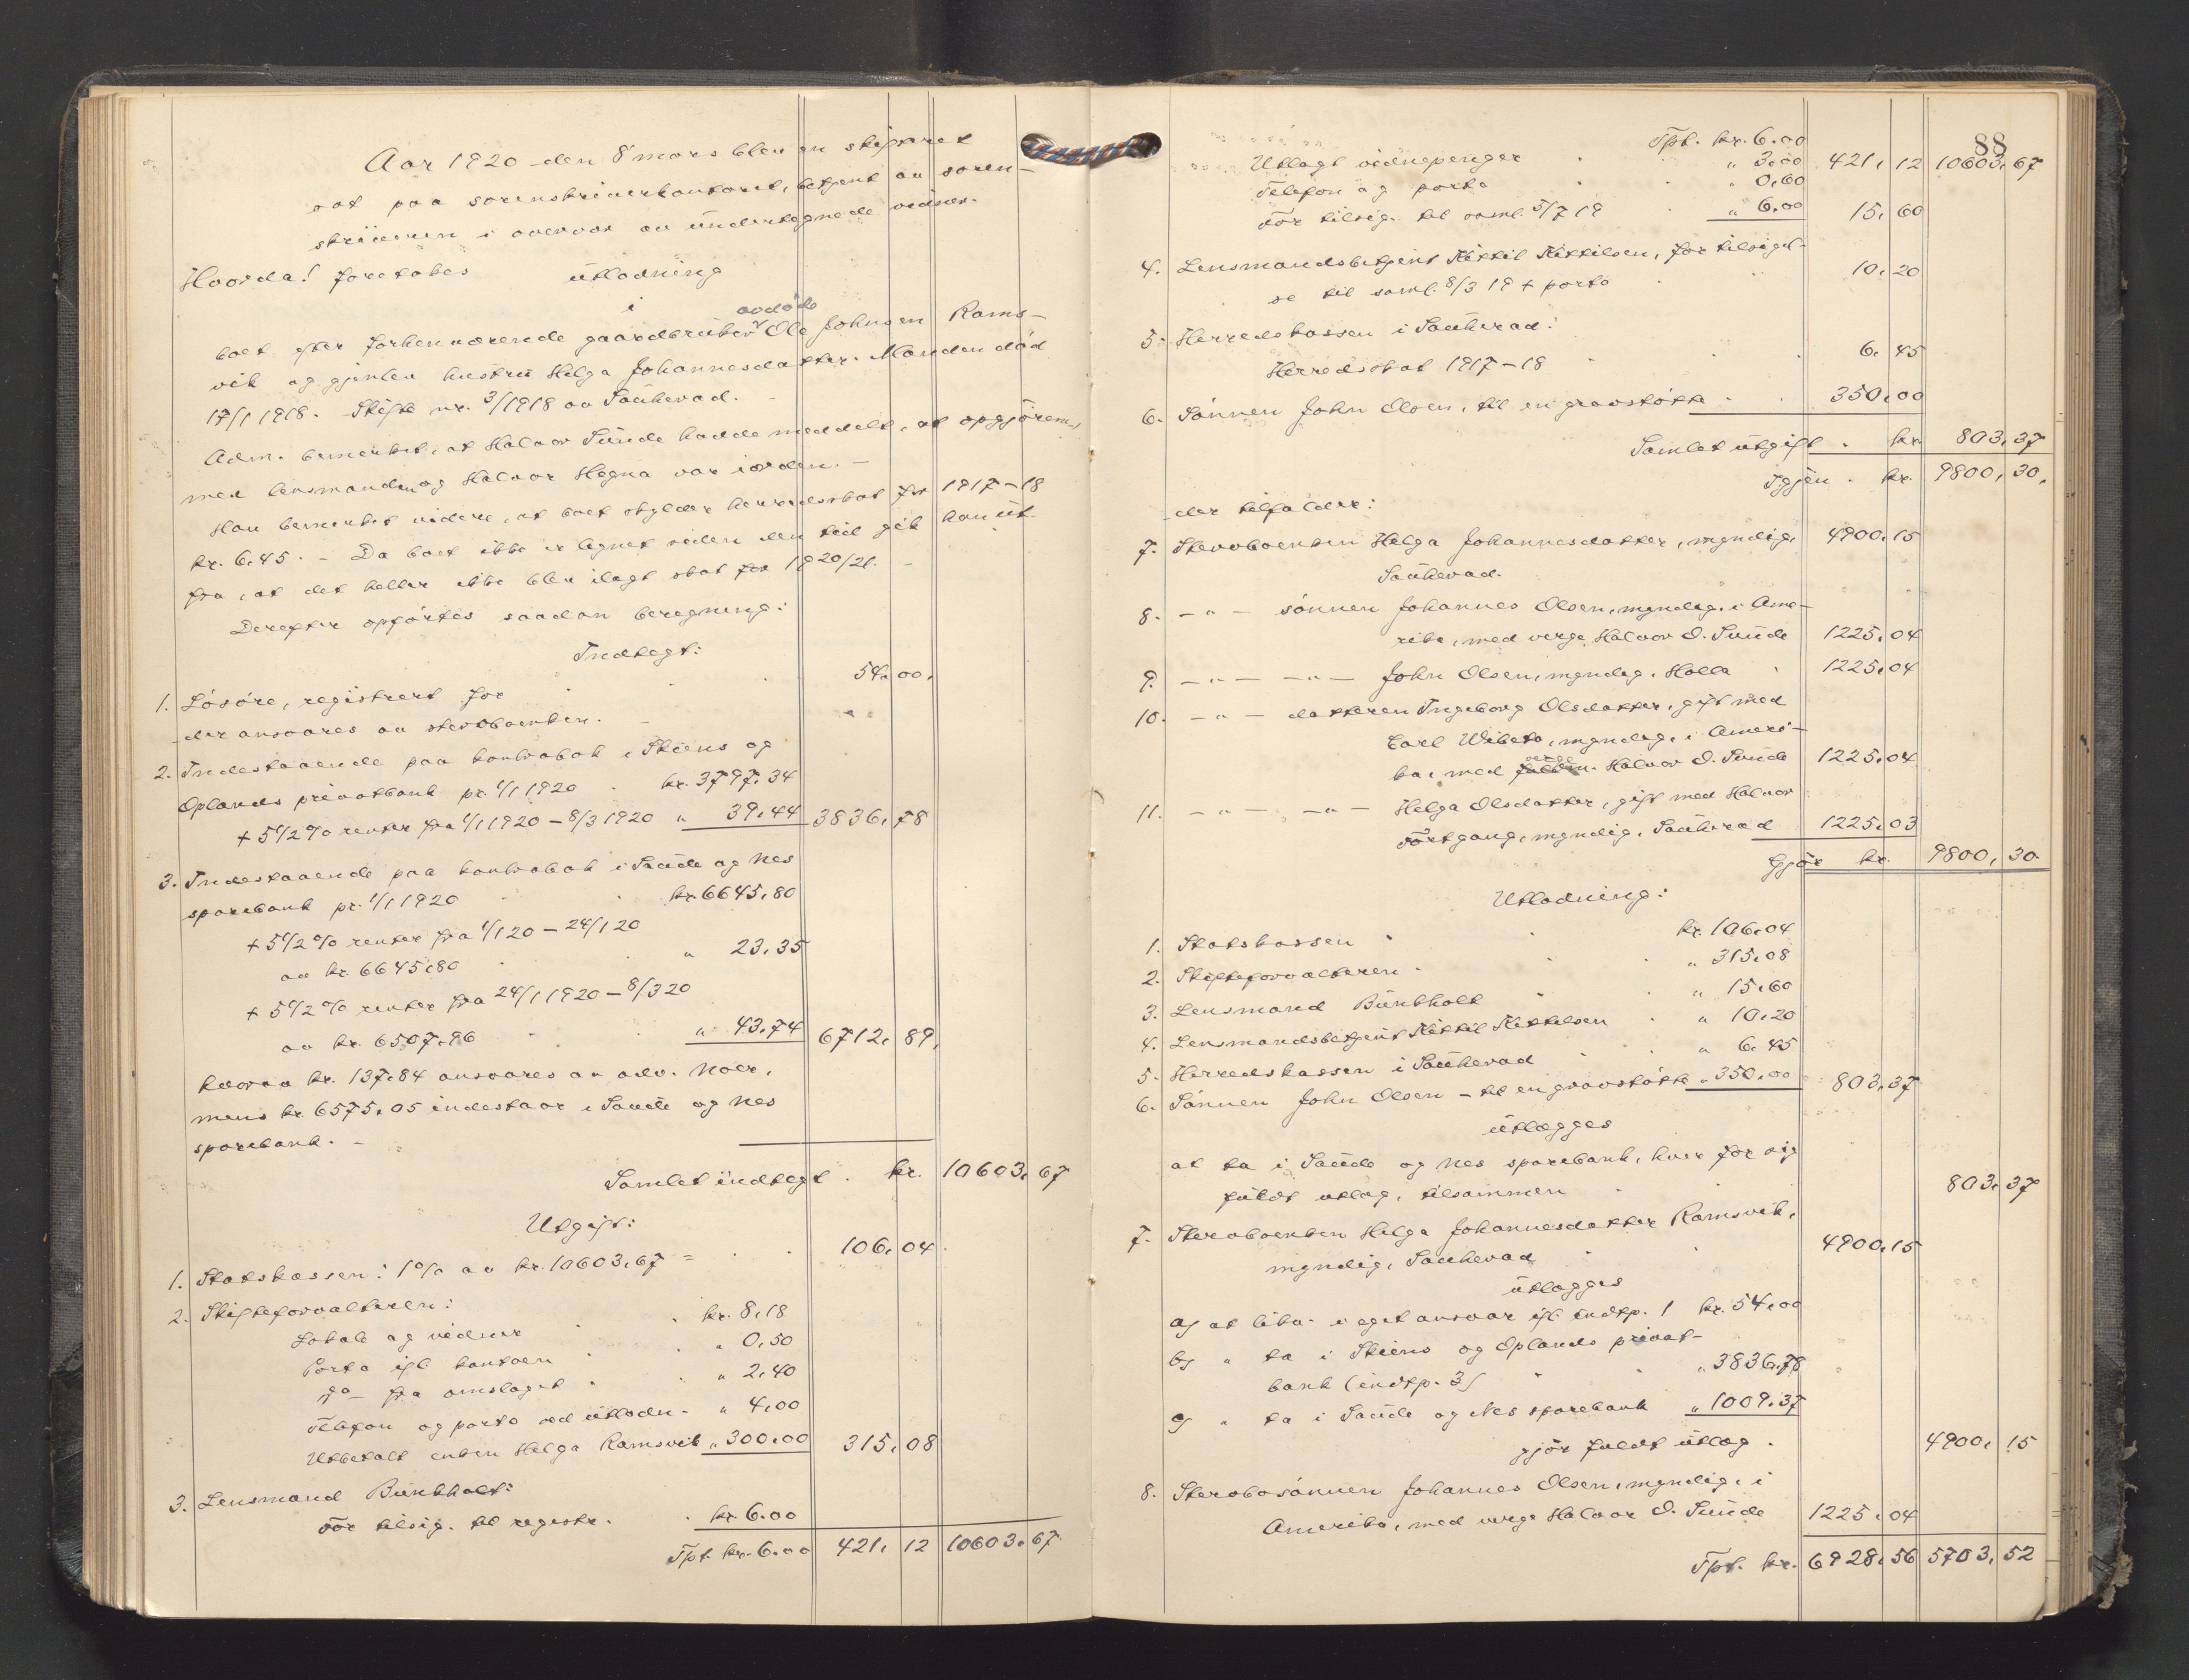 Aar 1920 den 8 mars blev en skifteret
sat paa sorenskriverkontoret, betjent av soren-
skriveren i overvær av undertegnede vidner.
Hvorda! foretokes utlodning
i
avdøde
boet efter forhenværende gaardbruker Ole Johnsen Rams-
vik og gjenlev hustru Helga Johannesdatter. Manden død
17/1 1918. Skifte nr. 3/1918 av Sauherad. -
Adm. bemerket, at Halvor Sunde hadde meddelt, at opgjörene
med lensmanden og Halvor Hegna var iorden. -
Han bemerket videre, at boet skylder herredsskat for 1917-18
kr. 6.45. - Da boet ikke er lignet siden den tid gik han ut
fra, at det heller ikke blev ilagt skat for 1920/21. -
Derefter opførtes saadan beregning:
Indtægt:
1. Løsøre, registrert for 54.00.
der ansvares av stervboenken.
2. Indestaaende paa kontrabok i Skiens og
Oplands privatbank pr. 1/1 1920 . kr. 3797.34
+ 5 1/2 % renter fra 1/1 1920 - 8/3 1920 " 39.44 3836.78
3. Indestaaende paa kontrabok i Saude og Nes
sparebank pr. 1/1 1920 . kr. 6645.80
+ 5 1/2 % renter fra 1/1 20 - 24/1 20
av kr. 6645.80 " 23.35
+ 5 1/2 % renter fra 24/1 1920 - 8/3 20
av kr. 6507.96 " 43.74 6712.89.
hvorav kr. 137.84 ansvares av adv. Noer,
mens kr. 6575.05 indestaar i Saude og Nes
sparebank. -
Samlet indtægt . kr. 10603.67
Utgift:
1. Statskassen: 1% av kr. 10603.67 = 106.04
2. Skifteforvalteren:
Lokale og vidner . kr. 8.18
Porto ifl. kontoen . " 0.50
do fra omslaget . " 2.40
Telefon og porto ved utlodn. " 4.00
Utbetalt enken Helga Ramsvik " 300.00 315.08
3. Lensmand Bunkholt:
For tilsig. til registr. . kr. 6.00
Tpt. kr. 6.00 421.12 10603.67
88
Tpt. kr. 6.00 421.12 10603.67
Utlagt vidnepenger . " 3.00
Telefon og porto . " 0.60
For tilsig. til saml. 5/7 19 . " 6.00 15.60
4. Lensmandsbetjent Kittil Kittilsen, for tilsigel-
se til saml. 8/3 19 + porto . 10.20
5. Herredskassen i Sauherad:
Herredsskat 1917-18 . 6.45
6. Sønnen John Olsen, til en gravstøtte . 350.00
Samlet utgift . kr. 803.37
Igjen . kr. 9800.30.
der tilfalder:
7. Stervboenken Helga Johannesdatter, myndig, 4900.15
Sauherad.
8. - " - sønnen Johannes Olsen, myndig, i Ame-
rika, med verge Halvor O. Sunde 1225.04
9. - " - - " - John Olsen, myndig, Holla . 1225.04
10. - " - datteren Ingeborg Olsdatter, gift med
Carl Wibeto, myndig, i Ameri-
verge
ka, med Halvor O. Sunde 1225.04
11. - " - - " - Helga Olsdatter, gift med Halvor
Førtgang, myndig, Sauherad 1225.03
Gjør kr. 9800.30
Utlodning:
1. Statskassen . kr. 106.04
2. Skifteforvalteren . " 315.08
3. Lensmand Bunkholt . " 15.60
4. Lensmandsbetjent Kittil Kittilsen . " 10.20
5. Herredskassen i Sauherad . " 6.45
6. Sønnen John Olsen - til en gravstøtte " 350.00 803.37
utlægges
at ta i Saude og Nes sparebank, hver for sig
fuldt utlæg, tilsammen . 803.37
7. Stervboenken Helga Johannesdatter Ramsvik,
myndig, Sauherad 4900.15
utlægges
a) at likv. i eget ansvar ifl. indtp. 1 kr. 54.00
b) " ta i Skiens og Oplands privat-
bank (indtp. 3) " 3836.78
c) " ta i Saude og Nes sparebank " 1009.37
gjør fuldt utlæg . 4900.15
8. Stervbosønnen Johannes Olsen, myndig, i
Amerika, med verge Halvor O. Sunde 1225.04
Tpt. kr. 6928.56 5703.52